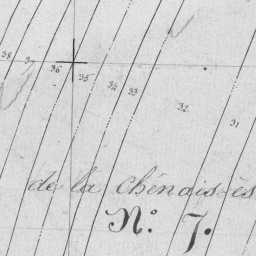 38 37 36 35 34 33 32 31
de la chênais-ès
N.° 7.